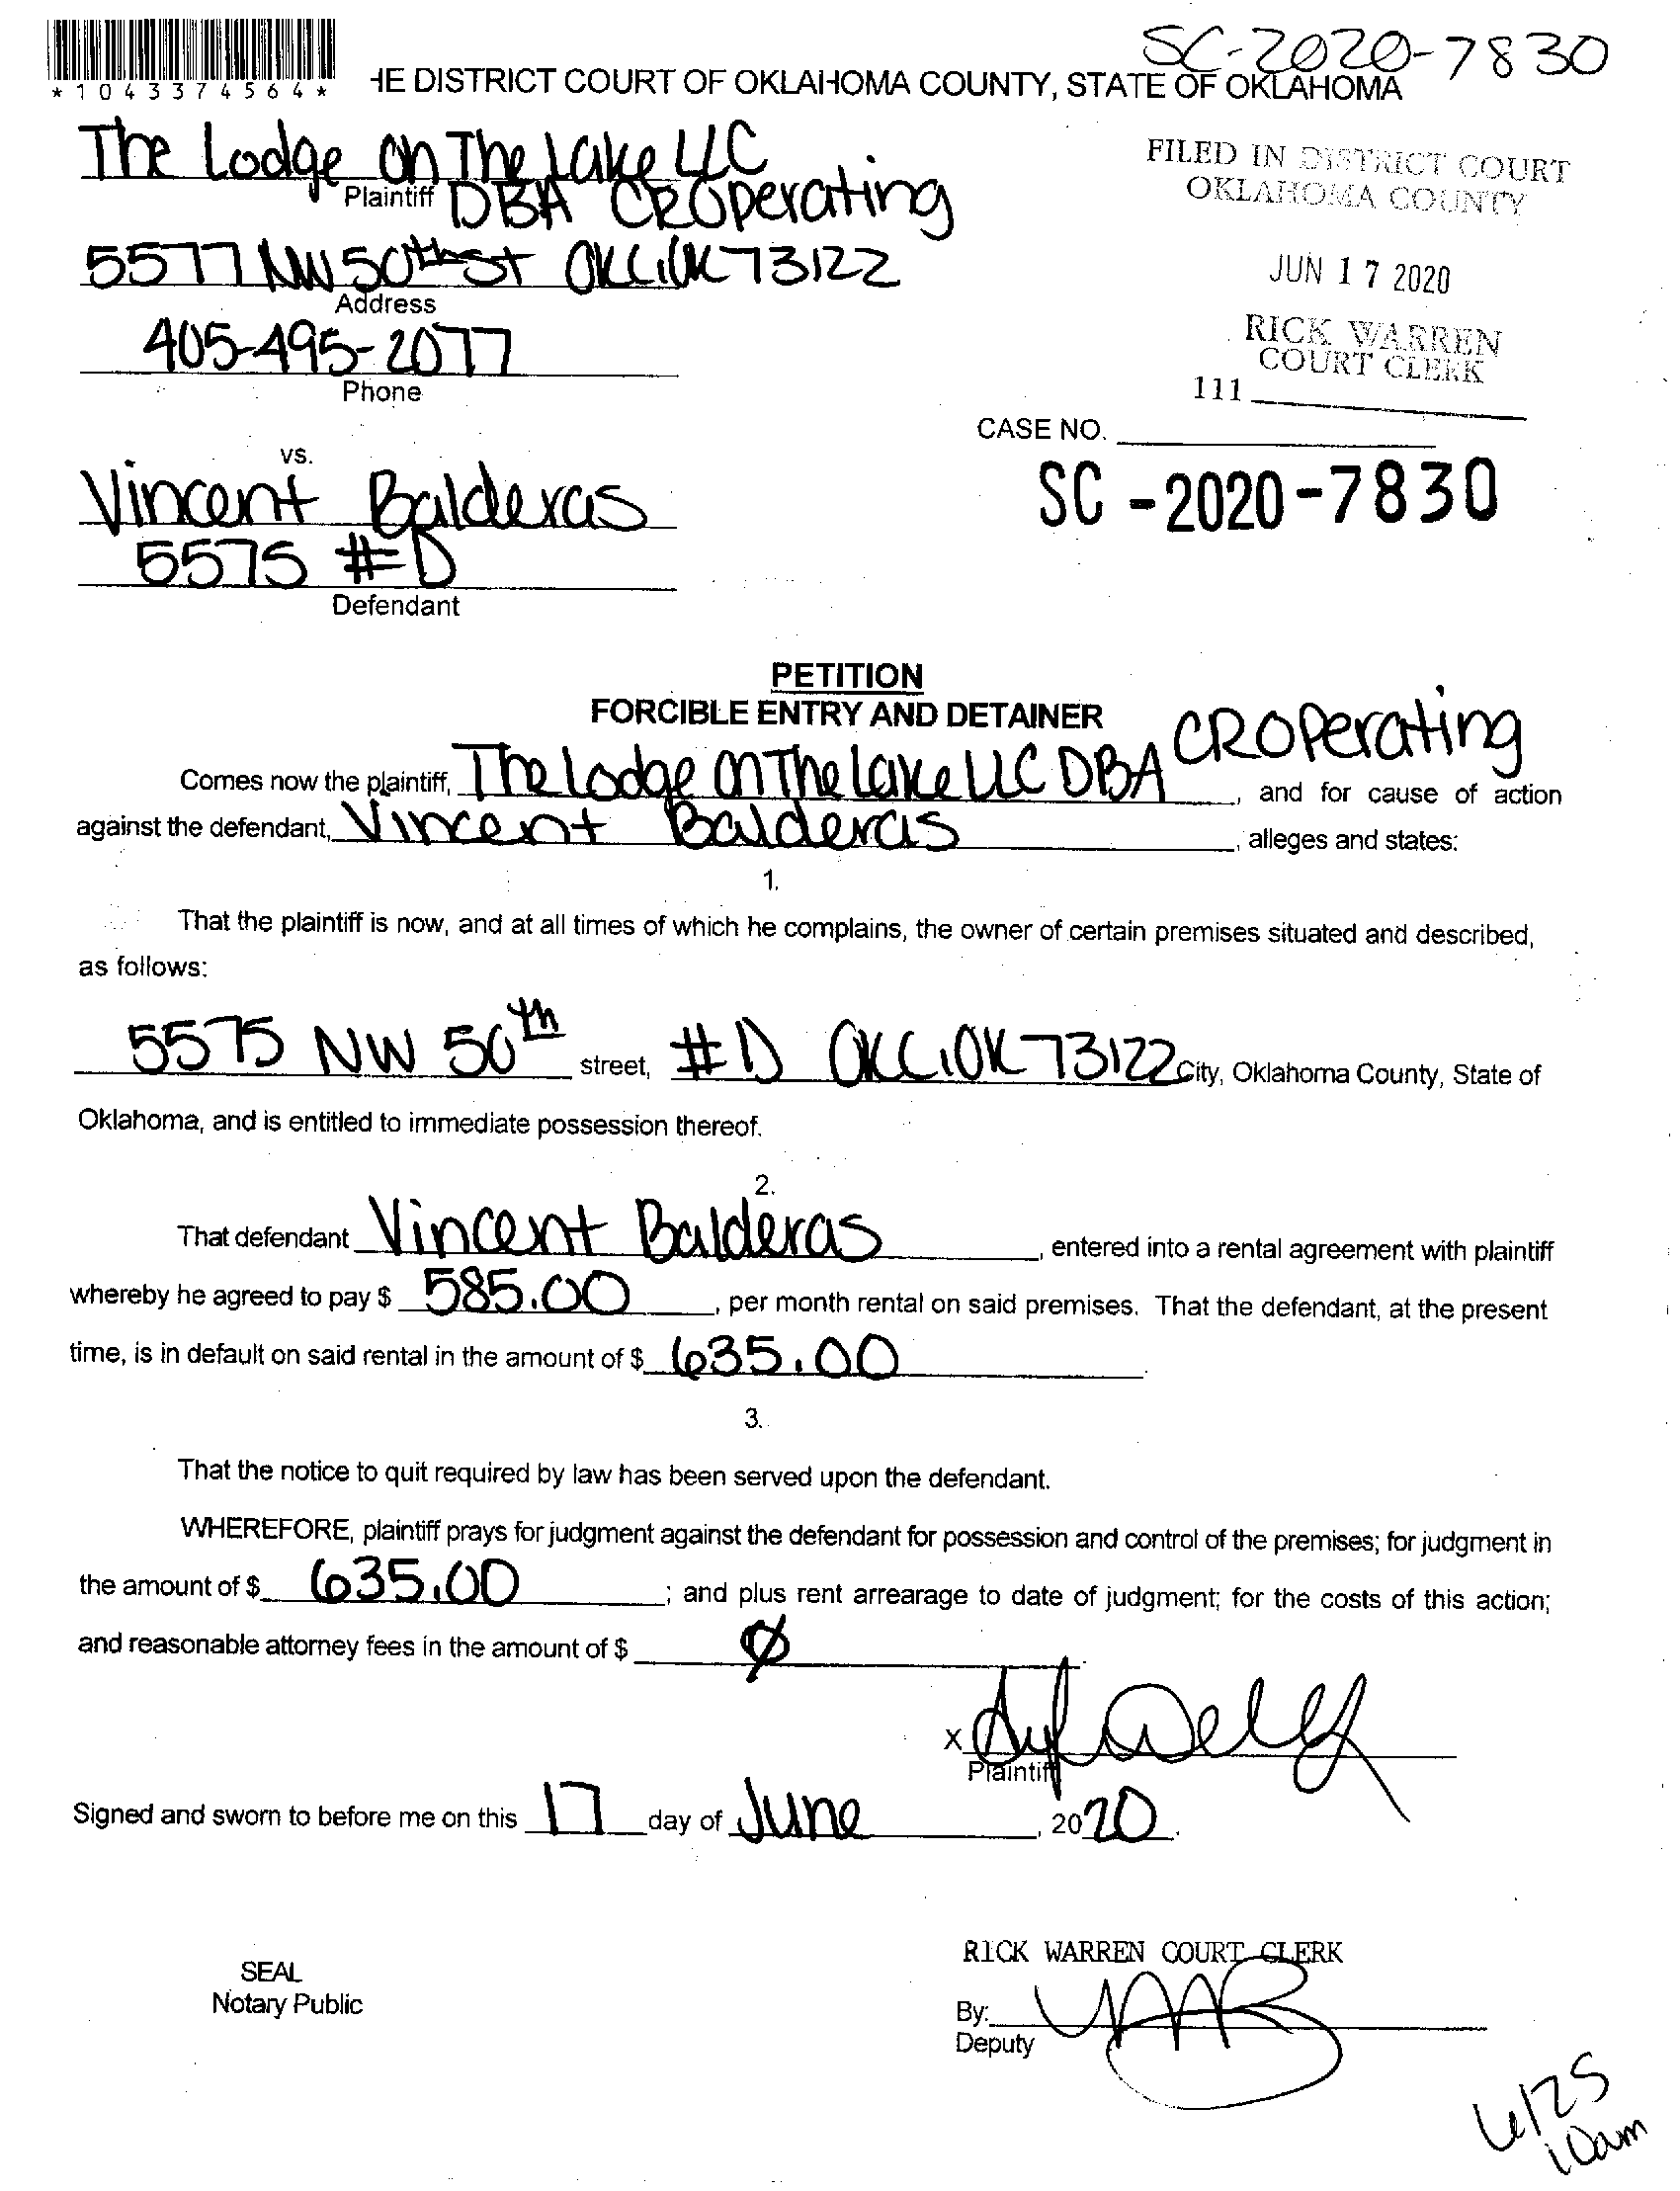 SC-2020-7830
*1043374564*
HE DISTRICT COURT OF OKLAHOMA COUNTY, STATE OF OKLAHOMA
The Lodge on The Lake LLC
Plaintiff DBA CROperating
FILED IN DISTRICT COURT
OKLAHOMA COUNTY
5577 NW 50th St OKC, OK 73122
Address
JUN 17 2020
405-495-2077
Phone
RICK WARREN
COURT CLERK
111
CASE NO.
SC-2020-7830
vs.
Vincent Balderas
5575 #D
Defendant
PETITION
FORCIBLE ENTRY AND DETAINER
Comes now the plaintiff, The Lodge on The Lake LLC DBA CROperating, and for cause of action
against the defendant, Vincent Balderas, alleges and states:
1.
That the plaintiff is now, and at all times of which he complains, the owner of certain premises situated and described,
as follows:
5575 NW 50th street, #D OKC, OK 73122 City, Oklahoma County, State of
Oklahoma, and is entitled to immediate possession thereof.
2.
That defendant Vincent Balderas, entered into a rental agreement with plaintiff
whereby he agreed to pay $ 585.00, per month rental on said premises. That the defendant, at the present
time, is in default on said rental in the amount of $ 635.00
3.
That the notice to quit required by law has been served upon the defendant.
WHEREFORE, plaintiff prays for judgment against the defendant for possession and control of the premises; for judgment in
the amount of $ 635.00; and plus rent arrearage to date of judgment; for the costs of this action;
and reasonable attorney fees in the amount of $ Ø
X
Plaintiff
Signed and sworn to before me on this 17 day of June, 2020.
SEAL
Notary Public
RICK WARREN COURT CLERK
By:
Deputy
6/25
10am